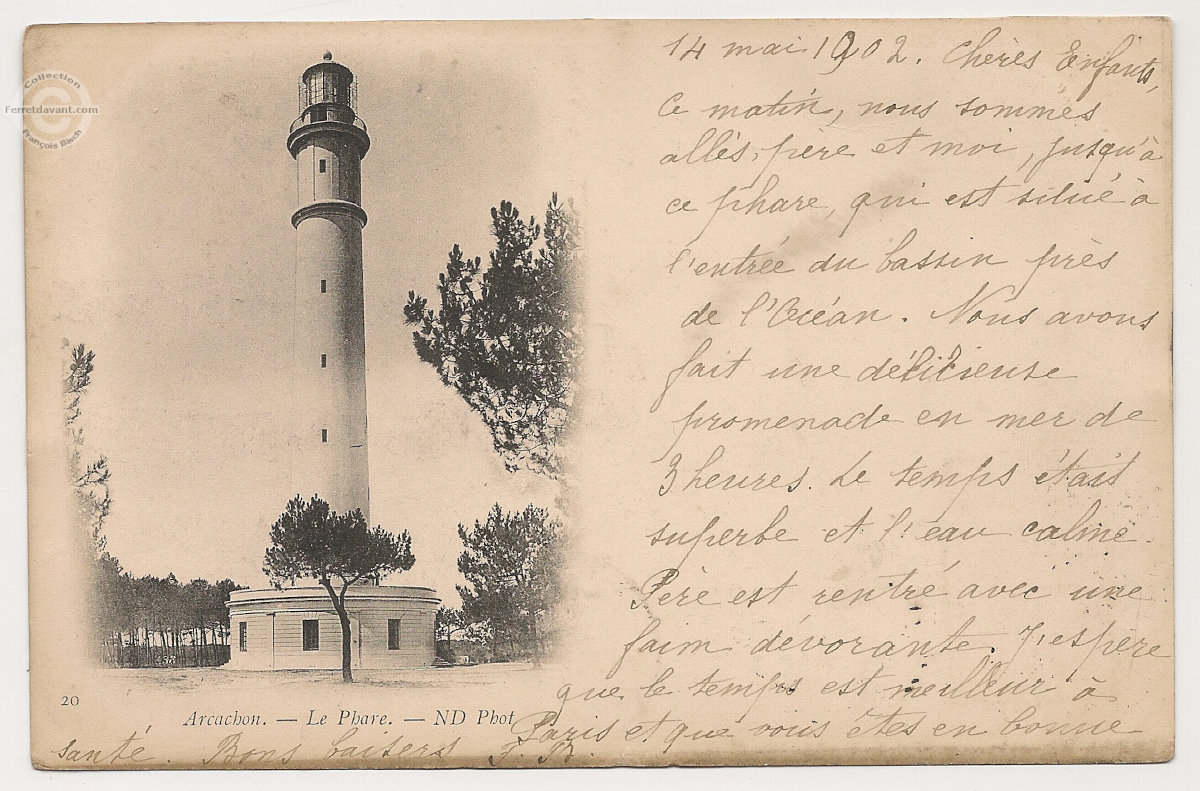 Collection
Ferretdavant.com
François Bisch
14 mai 1902. Chères Enfants,
Ce matin, nous sommes
allés, père et moi, jusqu'à
ce phare, qui est situé à
l'entrée du bassin près
de l'Océan. Nous avons
fait une délicieuse
promenade en mer de
3 heures. Le temps était
superbe et l'eau calme.
Père est rentré avec une
faim dévorante. J'espère
que le temps est meilleur à
Paris et que vous êtes en bonne
santé. Bons baisers
20
Arcachon. — Le Phare. — ND Phot